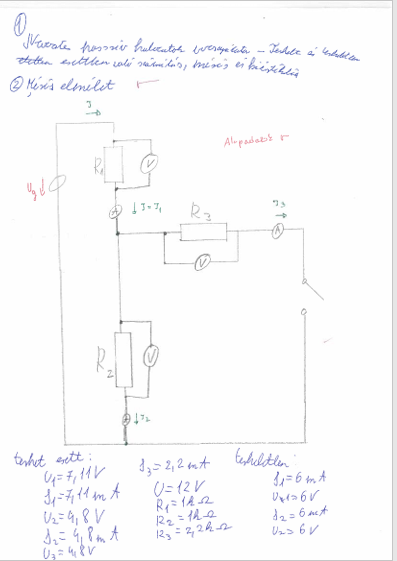 ①
passzív hálózatok – Terhelt és terheletlen
esetben való számítás, mérés és kiértékelés
② Mérés elmélet
I
Alapadatok
R1
V
Ug
A
I=I1
R3
I3
A
V
R2
V
A
I2
terhelt esett:
U1=7,11V
I1=7,11mA
U2=4,8V
I2=4,8mA
U3=4,8V
I3=2,2mA
U=12V
R1=1kΩ
R2=1kΩ
R3=2,2kΩ
terheletlen:
I1=6mA
U1=6V
I2=6mA
U2=6V